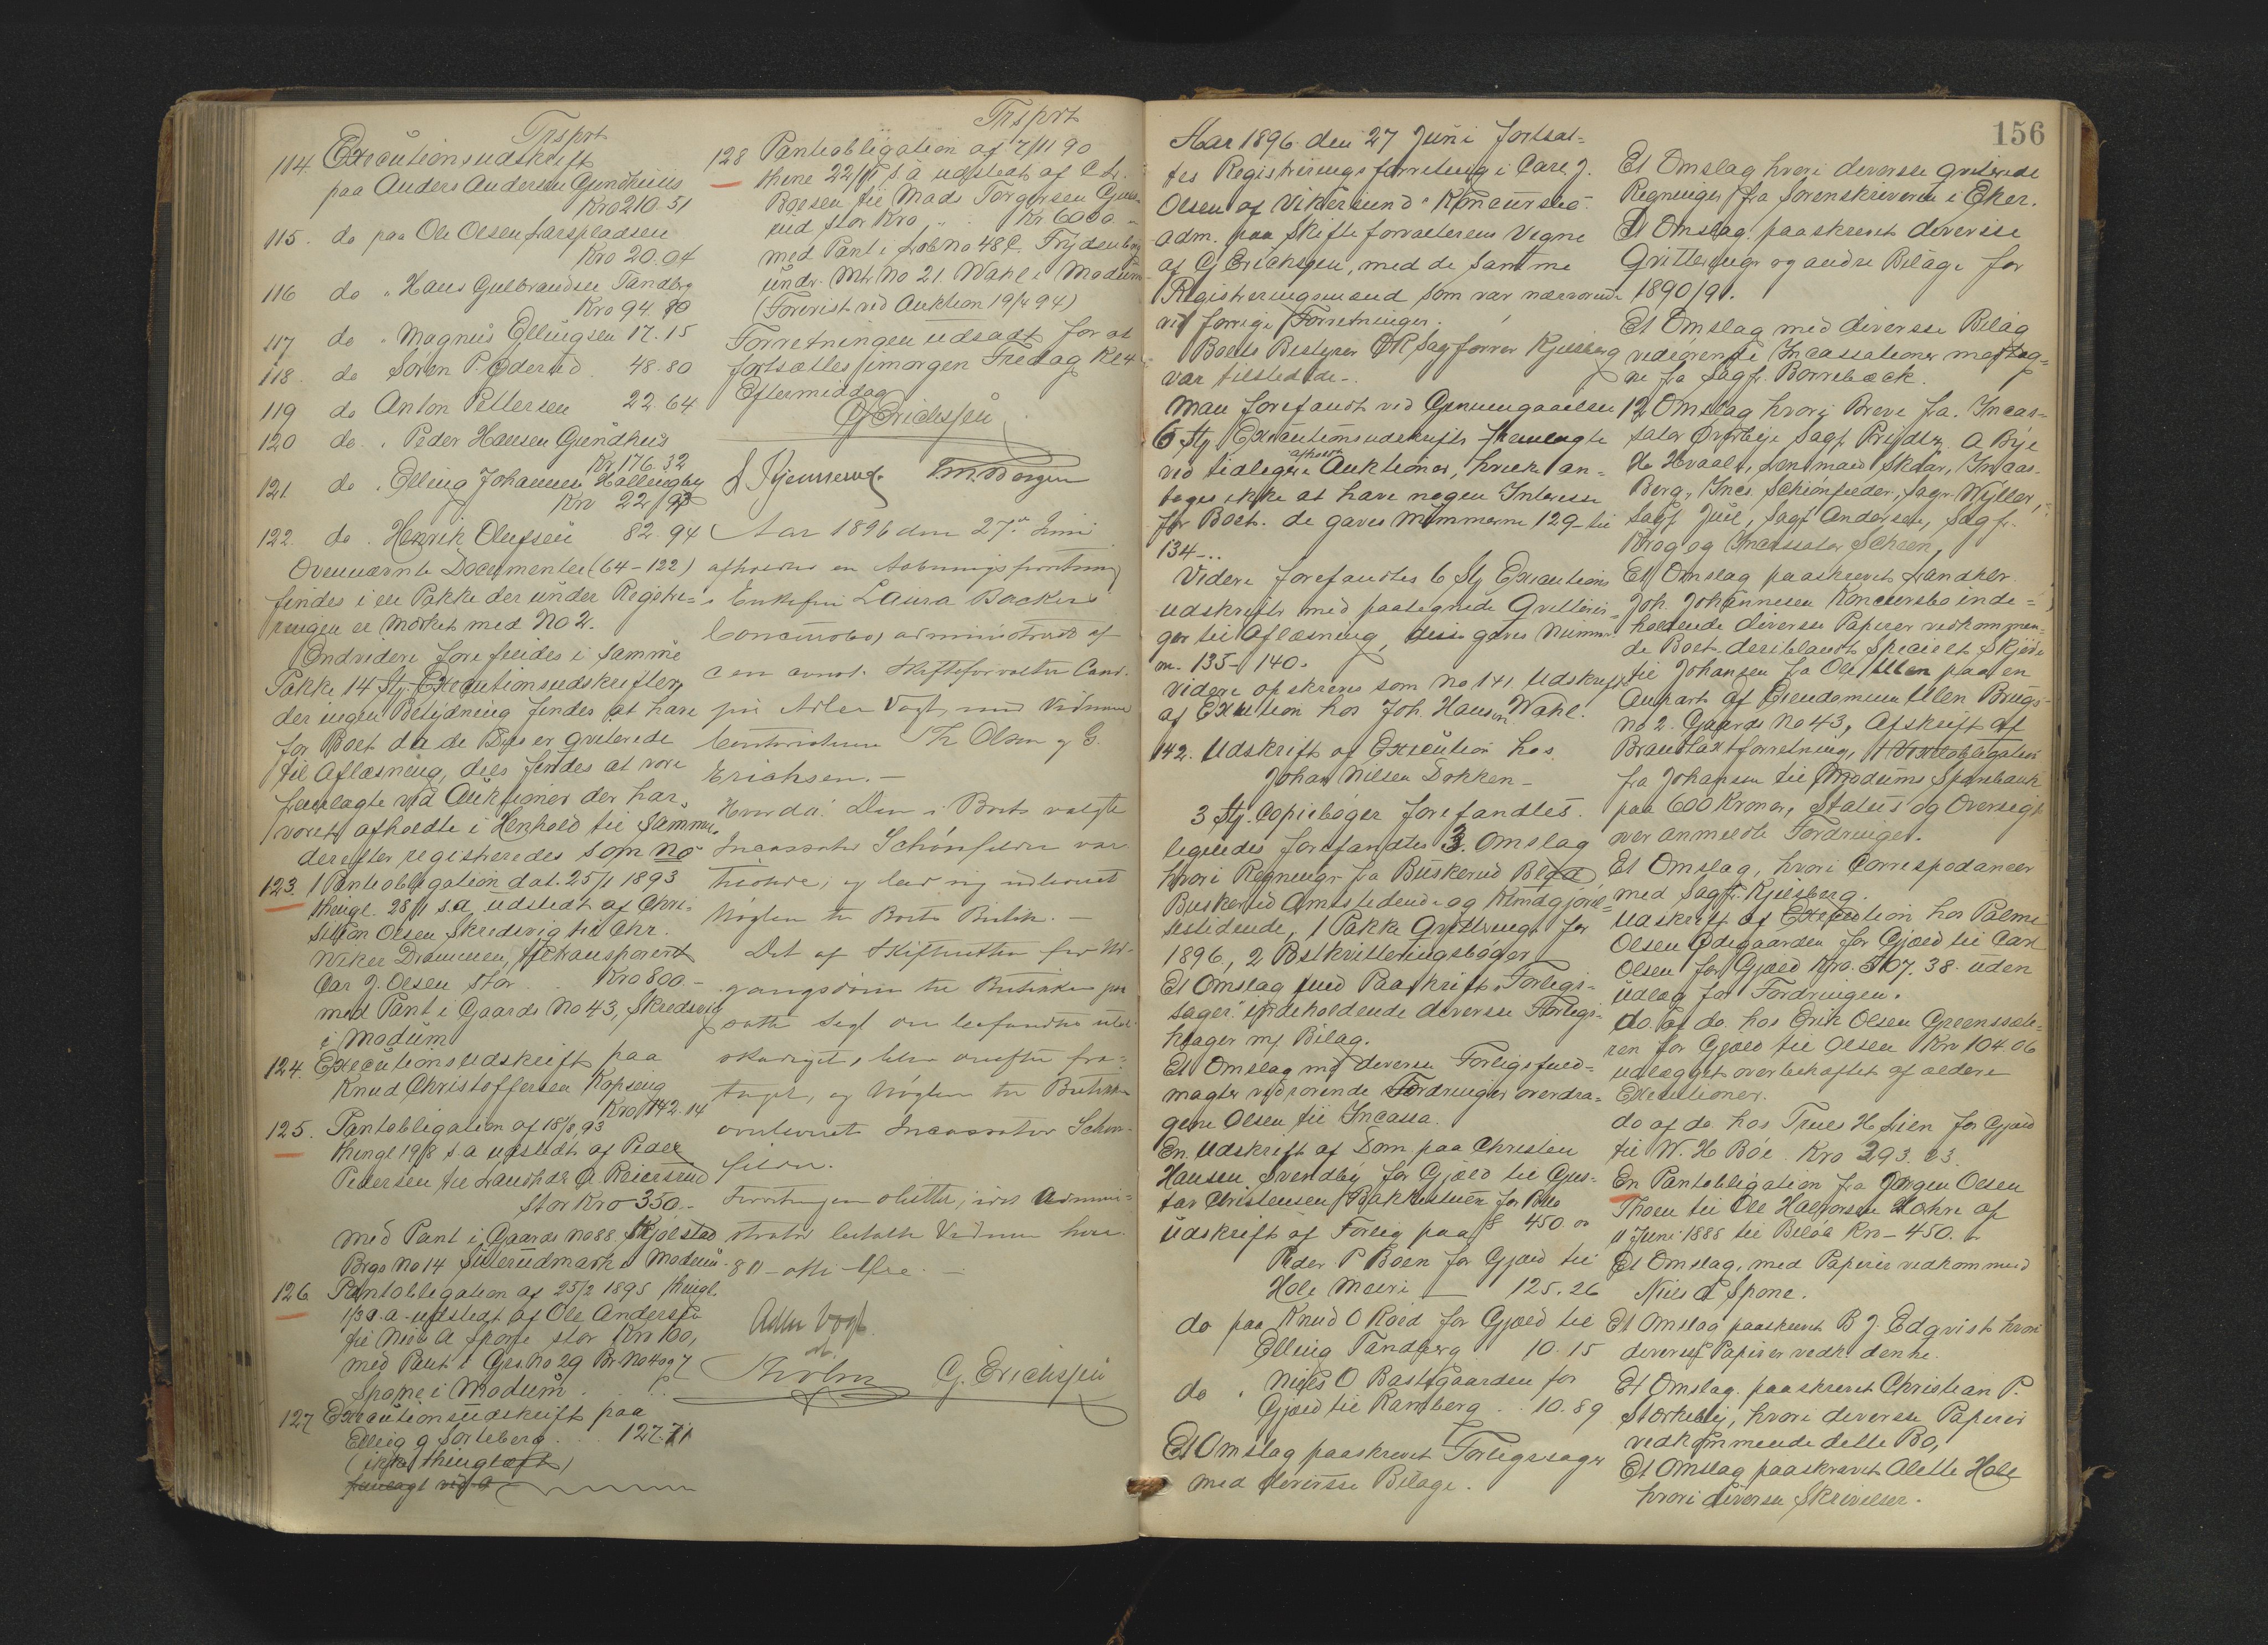 Trsprt
114. Executionsudskrift
paa Anders Andersen Gundhuus
Kro 210.51
115. do paa Ole Olsen Larspladsen
Kro 20.04
116 do " Hans Gulbrandsen Tandberg
Kro 94.80
117 do " Magnus Ellingsen 17.15
118. do Søren P. Øderud 48.80
119 do Anton Pettersen 22.64
120 do " Peder Hansen Gundhus
Kr 176.32
121. do " Elling Johannesen Hallingby
Kr 22.97
122. do " Henrik Olufsen 82.94
Ovennævnte Documenter (64-122)
findes i en Pakke der under Registre-
ringen er mærket med No 2.
Endvidere forefindes i samme
Pakke 14 Stj. Executionsudskrifter,
der ingen Betydning findes at have
for Boet da de Dels er qviterede
til Aflæsning, dels findes at være
fremlagte ved Auktioner der har
været afholdte i Henhold til samme.
derefter registreredes som No
123. 1 Panteobligation dat. 25/1 1893
thingl. 28/1 s.a. udstedt af Chri-
stian Olsen Skredsvig til Chr.
Wiker Drammen, transporteret
Carl J. Olsen stor Kro 800 -
med Pant i Gaards No 43, Skredsvig
i Modum
124. Executionsudskrift paa
Knud Christoffersen Kopseng
Kro 142.14
125. Pantobligation af 18/8 93
thingl 19/8 s.a udstedt af Peder
Pedersen til Landhdl. A. Reiersrud
stor Kro 350.-
med Pant i Gaards No 88. Skjølstad
Brgs No 14 Suterudmark i Modum.
126 Pantobligation af 25/2 1895 thingl.
1/3 s.a. udstedt af Ole Andersen
til Niels A Spone stor Kro 100,
med Pant i Grs. No 29 Br. No 4 og 7
Spone i Modum
127 Executionsudskrift paa
Elling G Sorteberg 127.71
(ikke thinglæst)
fremlagt ved A
Trsprt
128 Panteobligation af 7/11 90
thinl 22/11 s.a udstedt af C. L.
Boesen til Mads Torgersen Gjus-
rud stor Kro Kr 6000 -
med Pant i Løbno 48 c. Frydenberg
under Mt. No 21. Wahl i Modum
(Forevist ved Auktion 19/4 94)
Forretningen udsadt for at
fortsættes imorgen Fredag Kl 4
Eftermiddag
G Erichsen
T. M. Borgen
Aar 1896 den 27de Juni
afholdtes en Aabningsforretning
i Enkefru Laura Backers
Concursbo, administreret af
den const. Skifteforvalter Cand.
jur Adler Vogt, med Vidnerne
Contoristerne Th Olsen og G.
Erichsen. -
Hvorda: Den i Boets valgte
Incassator Schönfelder var
tilstede, og lod sig udleveret
Nøglen til Boets Butik. -
Det af Skifteretten for Ud-
gangsdøren til Butikken paa-
satte Segl som befandtes ube-
skadiget, blev derefter fra-
taget, og Nøglen til Butikken
overleveret Incassator Schøn-
felder.
Forretningen sluttet, idet Admini-
strator betalte Vidnerne hver
80 - otti Øre. -
Adler Vogt
Th Olsen G. Erichsen
156
Aar 1896 den 27 Juni fortsat-
tes Registreringsforretning i Carl J.
Olsen af Vikersund's Koncursbo.
adm. paa Skifteforvalterens Vegne
af G Erichsen, med de samme
Registreringsmænd som var nærværende
ved forrige Forretninger.
Boets Bestyrer OR Sagfører Kjelsberg
var tilstede. -
Man forefandt ved Gjennemgaaelsen
6 Stj Executionsudskrifter fremlagte
ved tidligere afholdte Auktioner, hvilke an-
toges ikke at have nogen Interesse
for Boet. de gaves Nummerne 129 til
134 -..
Videre forefandtes 6 Stj Executions
udskrifter med paategnede Qvitterin-
ger til Aflæsning, disse gaves Numme
ne. 135-140.
Videre opskreves som No 141 Udskrift
af Execution hos Joh. Hansen Wahl.
142. Udskrift af Execution hos
Johan Nilsen Dokken -
3 Stj. Copiebøger forefandtes.
ligeledes forefandtes 3. Omslag
hvori Regninger fra Buskerud Blad
Buskerud Amtstidende og Kundgjørel-
sestidende, 1 Pakke Qvittringer for
1896, 2 Postkvitteringsbøger
Et Omslag med Paaskrift "Forligs-
sager" indeholdende diverse Forligs-
klager m/ Bilag.
Et Omslag m/ diverse Forligsfuld-
magter vedrørende Fordringer overdra-
gene Olsen til Incasso.
En Udskrift af Dom paa Christian
Hansen Svendby for Gjæld til Gus-
tav Christensen Bakkestuen for
Udskrift af Forlig paa 450.00
Peder P Boen for Gjæld til
Hole Meieri - 125.26
do paa Knud O Røed for Gjæld til
Elling Tandberg 10.15
do " Niels O Bastgaarden for
Gjæld til Ramberg .. 10.89
Et Omslag paaskrevet Forligssager
med diverse Bilage.
Et Omslag hvori diverse qviterede
Regninger fra Sorenskriveren i Eker.
Et Omslag paaskrevet diverse
Qvitteringer og andre Bilage for
1890/91.
Et Omslag med diverse Bilag
vedrørende Incassationer modtag-
ne fra Sagf. Borrebæck.
12 Omslag hvori Breve fra Incas-
sator Ørbye Sagf. Prydtz, A Bye
Ho Hvaale, Lensmand Skaar, Incas.
Berg, Incs. Schiønfelder, Sagr. Wyller,
Sagf Juel, Sagf Andersen, Sagfr.
Krog og Incassator Scheen,
Et Omslag paaskrevet Landhdl.
Joh. Johannesen Koncursbo inde-
holdende diverse Papirer vedkommen-
de Boet deriblandt Specielt Skjøde
til Johansen fra Ole Ullen paa en
Anpart af Eiendommen Ullen Brugs-
no 2. Gaards No 43, Afskrift af
Brandtaxtforretning, 1 Vexelobligation
fra Johansen til Modums Sparebank
paa 600 Kroner, Status og Oversigt
over anmeldte Fordringer.
Et Omslag, hvori Correspodancer
med Sagfr. Kjelsberg.
Udskrift af Execution hos Palme
Olsen Ødegaarden for Gjæld til Carl
Olsen for Gjæld Kro. 507.38. uden
Udlæg for Fordringen.
do. af do. hos Erik Olsen Greensæte-
ren for Gjæld til Olsen Kro 104.06
udlægget overbehæftet af ældere
Executioner.
do af do. hos Truls H Lien for Gjæld
til W. H Böe. Kro 293.23.
En Pantobligation fra Jørgen Olsen
Thoen til Ole Halvorsen Løkre af
11 Juni 1885 til Beløb Kr - 450.
Et Omslag, med Papirer vedkommend
Niels A Spone.
Et Omslag paaskrevet B J. Edqvist hvori
diverse Papirer vedk. denne.
Et Omslag paaskrevet Christian P.
Størkebøy, hvori diverse Papirer
vedkommende dette Bo,
Et Omslag paaskrevet Alette Hole
hvori diverse Skrivelser.